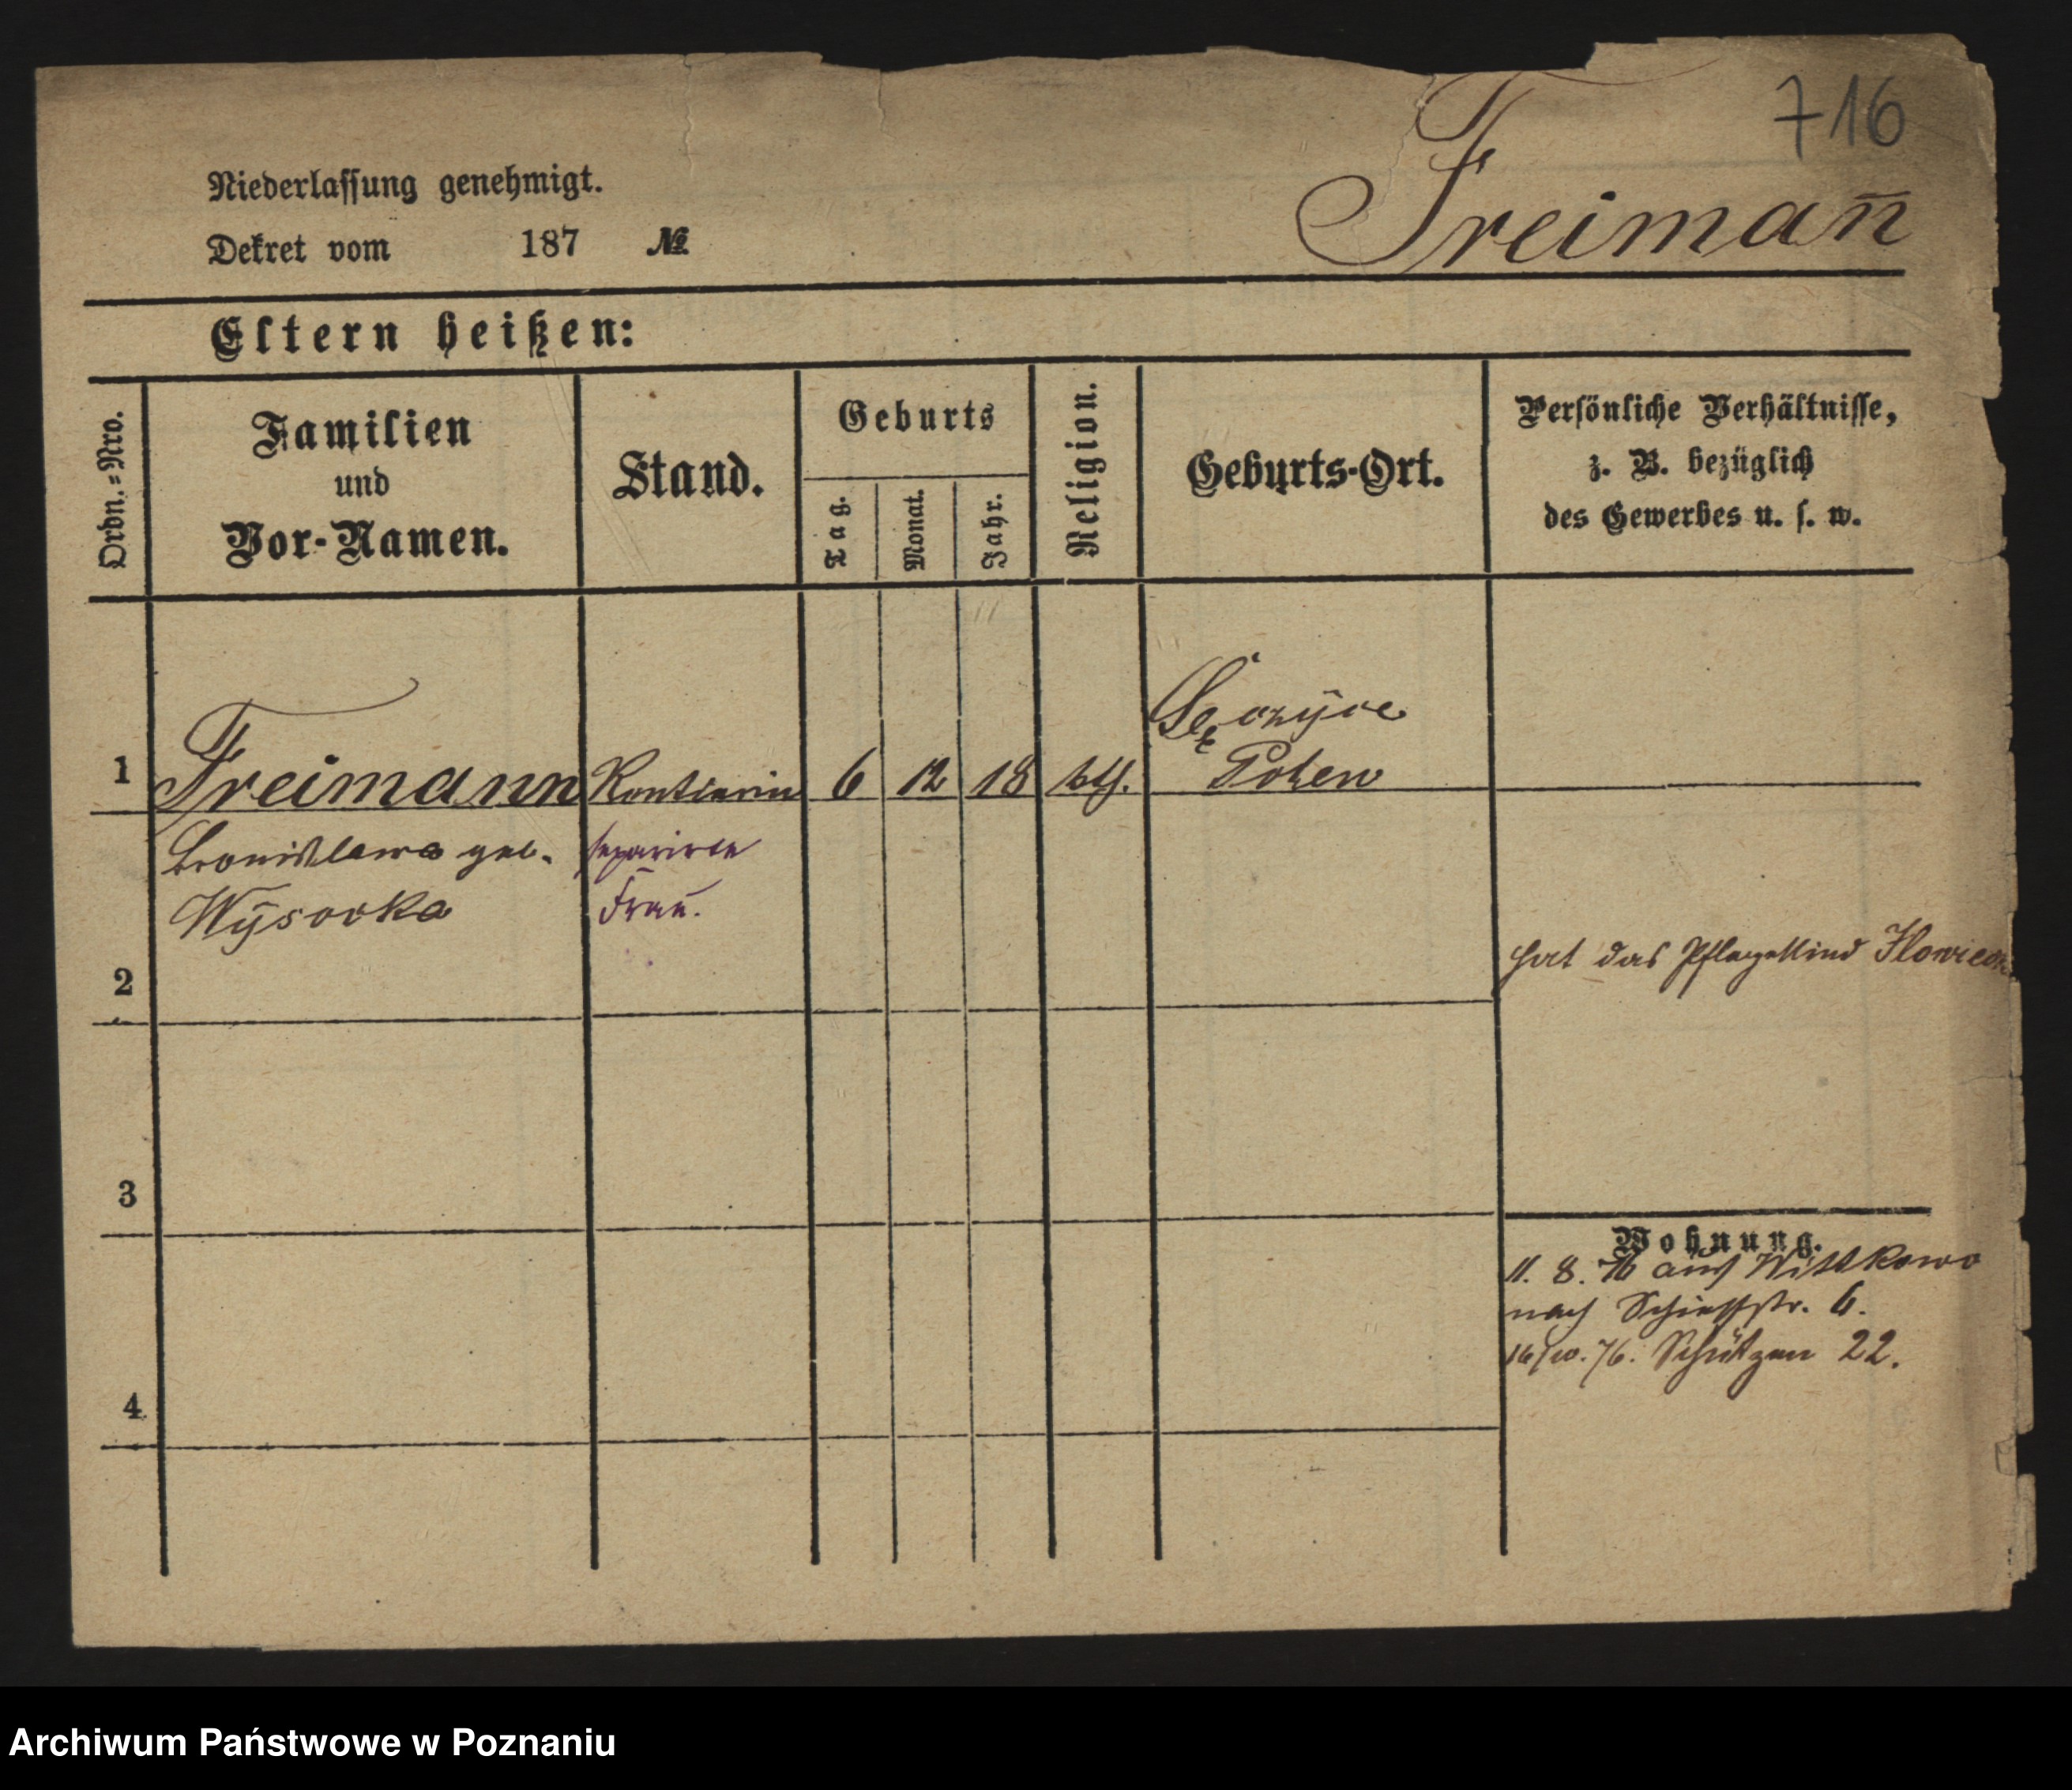 716
Niederlassung genehmigt.
Dekret vom 187 №
Freiman̄
Eltern heißen:
Ordn.-Nro.
Familien
und
Vor-Namen.
Stand.
Geburts
Tag.
Monat.
Jahr.
Religion.
Geburts-Ort.
Persönliche Verhältnisse,
z. B. bezüglich
des Gewerbes u. s. w.
1 Freimann Rentierin 6 12 18 kth.
Polen
Bronislawa geb. separirte
Wysocka Frau.
2
hat das Pflegekind
3
Wohnung.
11. 8. 76 aus Wittkowo
nach Schiesstr. 6.
16/10. 76. Schützen 22.
4
Archiwum Państwowe w Poznaniu